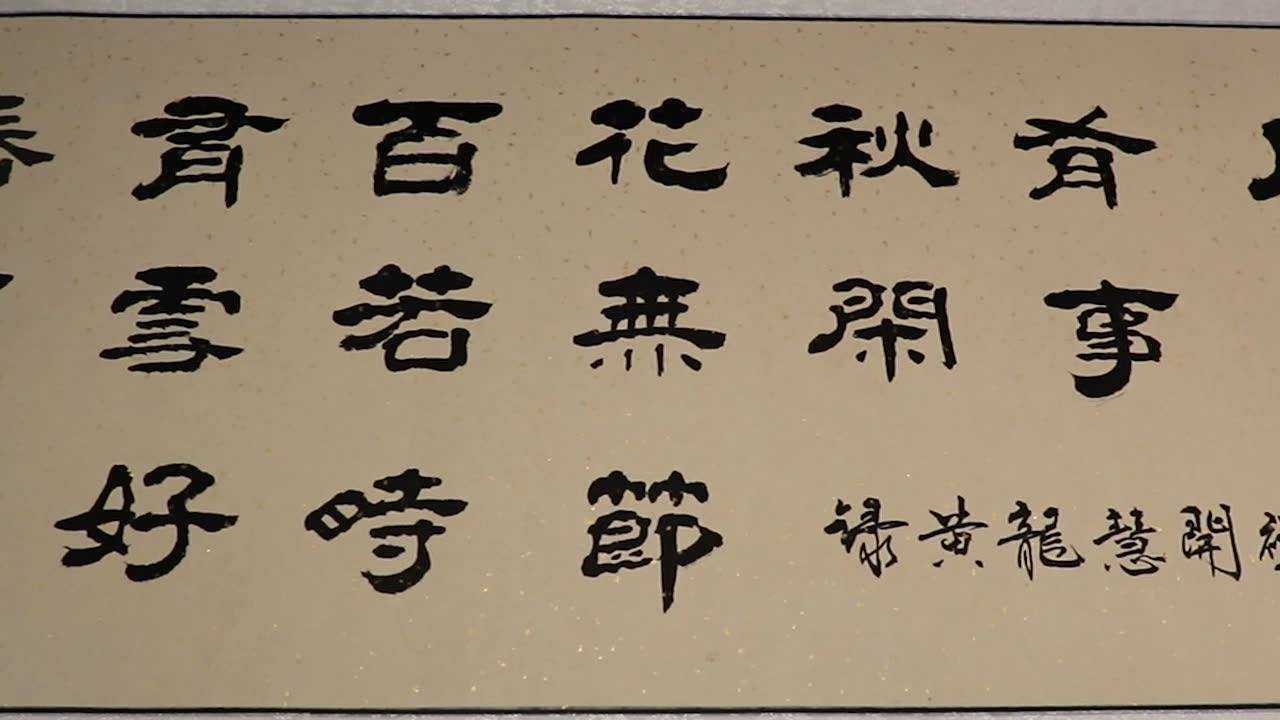 春有百花秋有
雪若無閑事
好時節 録黄龍慧開